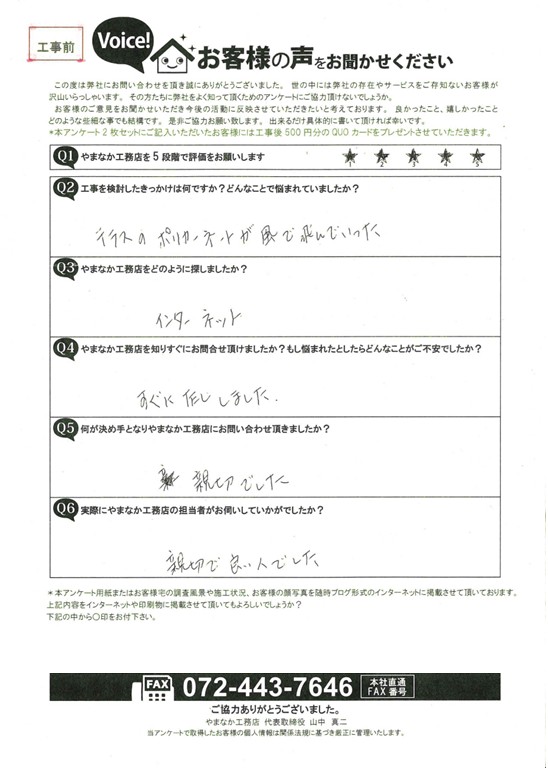 工事前
Voice!
お客様の声をお聞かせください
この度は弊社にお問い合わせを頂き誠にありがとうございました。 世の中には弊社の存在やサービスをご存知ないお客様が
沢山いらっしゃいます。 その方たちに弊社をよく知って頂くためのアンケートにご協力頂けないでしょうか。
お客様のご意見をお聞かせいただき今後の活動に反映させていただきたいと考えております。 良かったこと、嬉しかったこと
どのような些細な事でも結構です。 是非ご協力お願い致します。 出来るだけ具体的に書いて頂ければ幸いです。
*本アンケート2枚セットにご記入いただいたお客様には工事後500円分のQUOカードをプレゼントさせていただきます。
Q1 やまなか工務店を5段階で評価をお願いします
1 2 3 4 5
Q2 工事を検討したきっかけは何ですか?どんなことで悩まれていましたか?
テラスのポリカーネットが風で飛んでいった
Q3 やまなか工務店をどのように探しましたか?
インターネット
Q4 やまなか工務店を知りすぐにお問合せ頂けましたか?もし悩まれたとしたらどんなことがご不安でしたか?
すぐに しました.
Q5 何が決め手となりやまなか工務店にお問い合わせ頂きましたか?
親切でした
Q6 実際にやまなか工務店の担当者がお伺いしていかがでしたか?
親切で良い人でした
*本アンケート用紙またはお客様宅の調査風景や施工状況、お客様の顔写真を随時ブログ形式のインターネットに掲載させて頂いております。
上記内容をインターネットや印刷物に掲載させて頂いてもよろしいでしょうか?
下記の中から〇印をお付下さい。
FAX 072-443-7646 本社直通
FAX番号
ご協力ありがとうございました。
やまなか工務店 代表取締役 山中 真二
当アンケートで取得したお客様の個人情報は関係法規に基づき厳正に管理いたします。